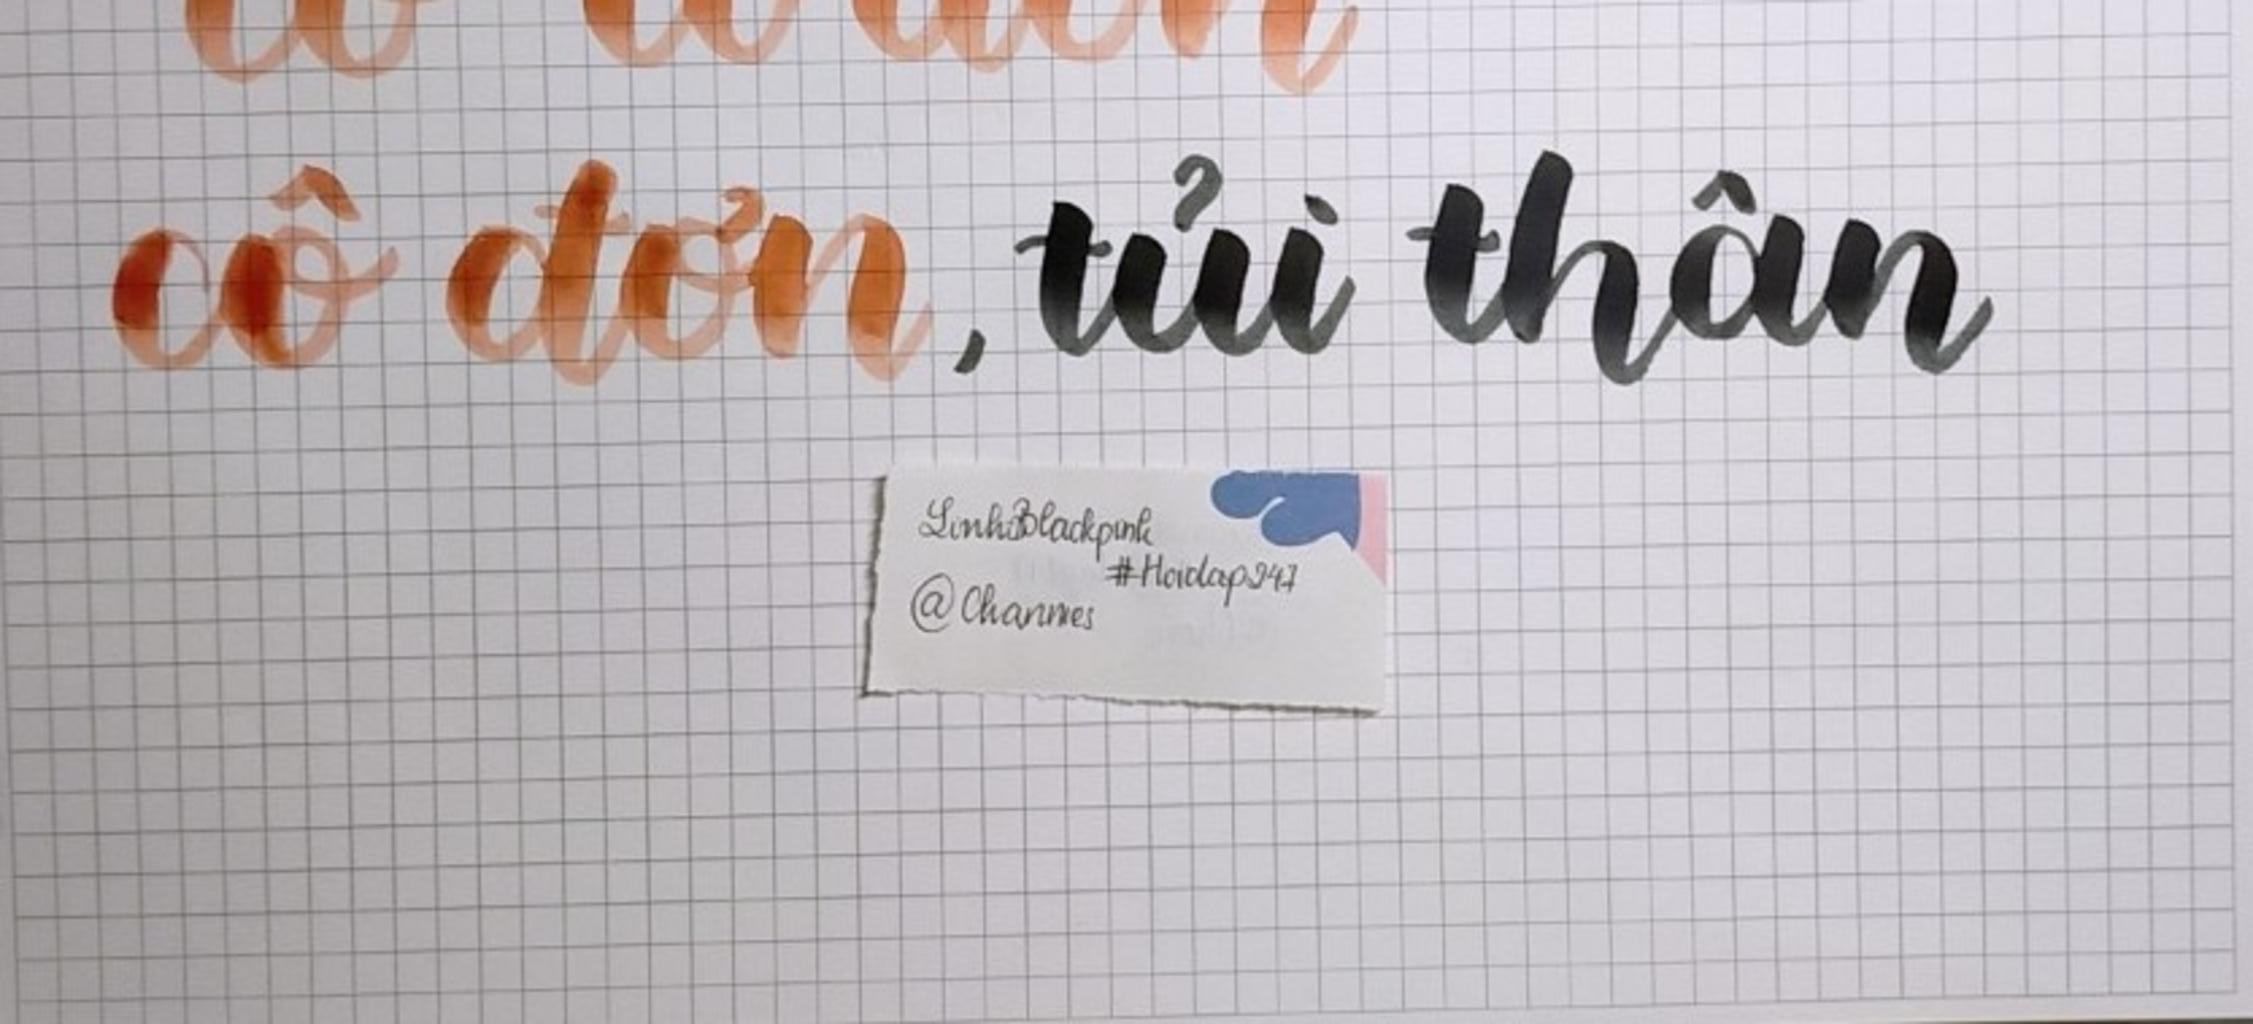 cô đơn, tủi thân
LinhBlackpink
#Hoidap247
@Channies